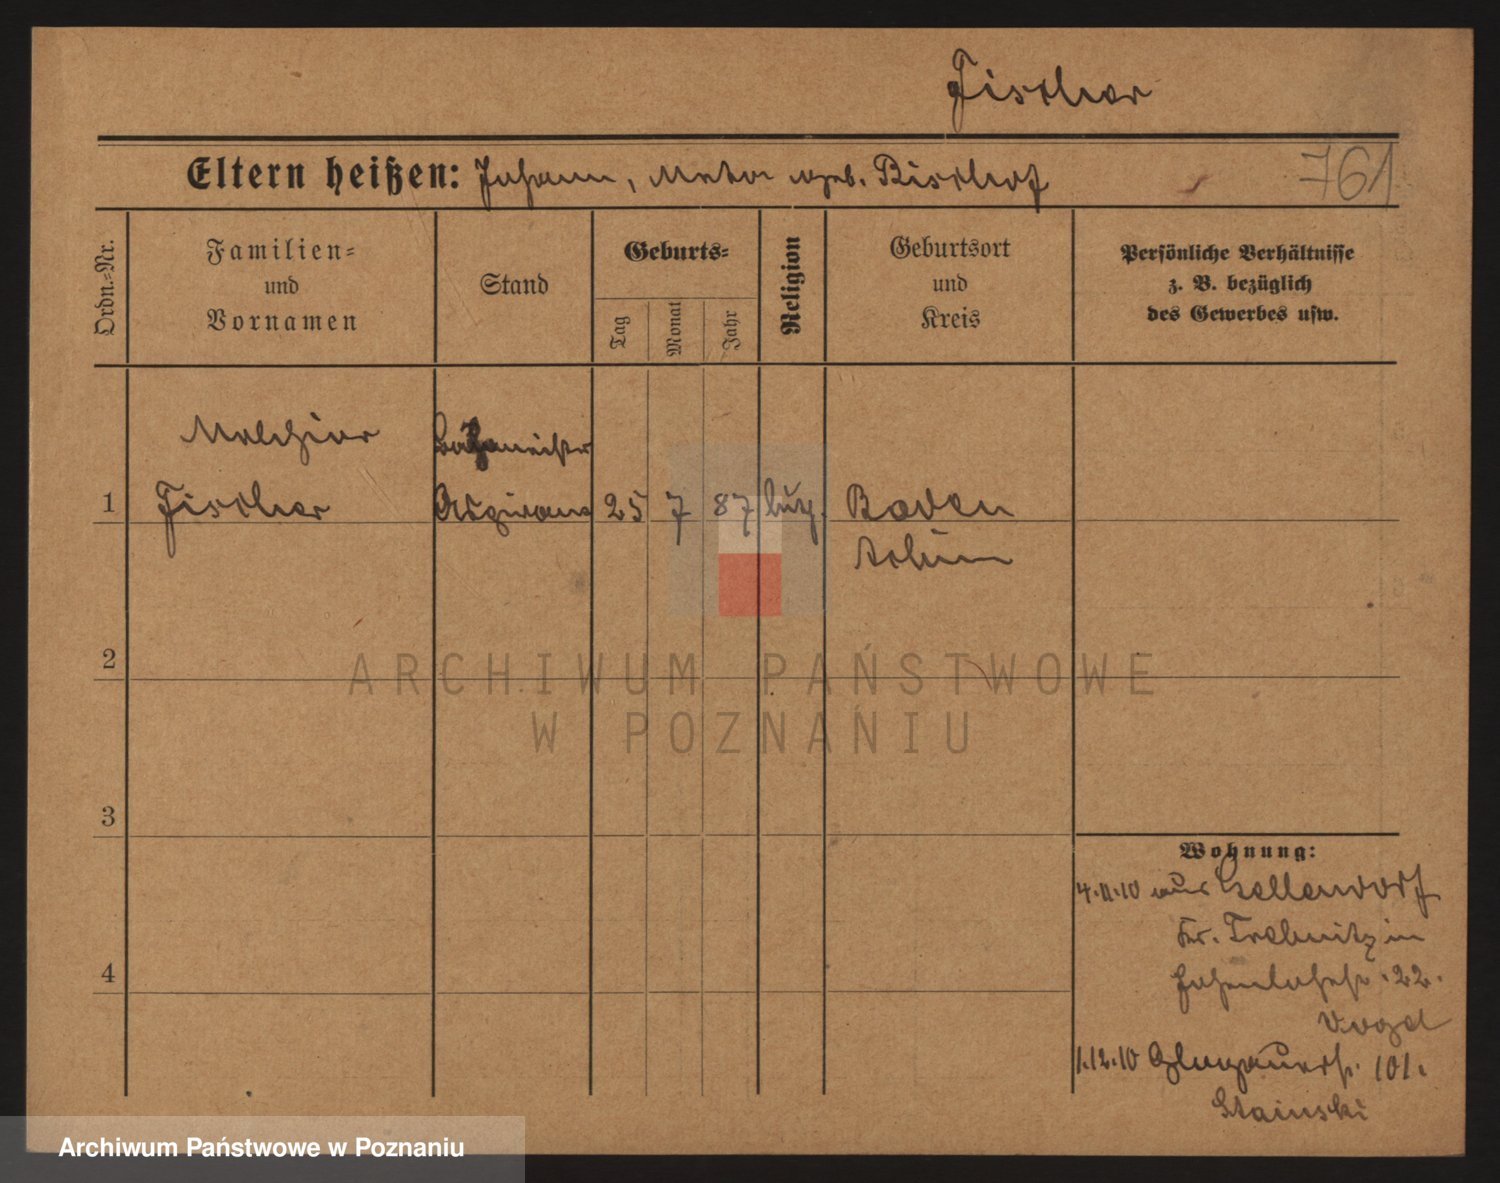 Fischer
Eltern heißen: Johann, geb. Bischof
761
Ordn.=Nr.
Familien=
und
Vornamen
Stand
Geburts=
Tag
Monat
Jahr
Religion
Geburtsort
und
Kreis
Persönliche Verhältnisse
z. B. bezüglich
des Gewerbes usw.
Melchior
1
Fischer
Aspirant
25
7
87
Baden
2
3
4
Wohnung:
4.11.10 aus Gellendorf
Kr. Trebnitz in
Hohenlohestr. 22.
Vogel
1.12.10 Glogauerstr. 101.
Stainski
ARCHIWUM PAŃSTWOWE
W POZNANIU
Archiwum Państwowe w Poznaniu